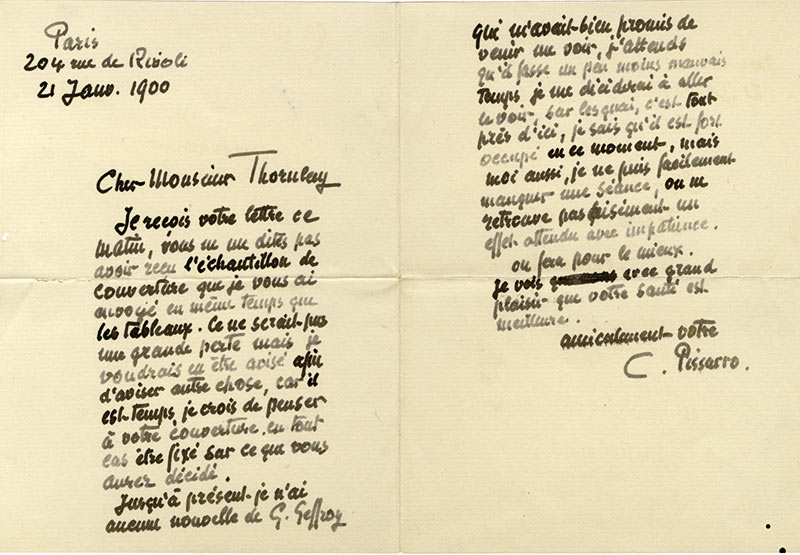 Paris
204 rue de Rivoli
21 Janv. 1900
Cher Monsieur Thornley
Je reçois votre lettre ce
matin, vous ne me dites pas
avoir reçu l'échantillon de
couverture que je vous ai
envoyé en même temps que
les tableaux. Ce ne serait pas
une grande perte mais je
voudrais en être avisé afin
d'aviser autre chose, car il
est temps, je crois de penser
à votre couverture. en tout
cas être fixé sur ce que vous
aurez décidé.
Jusqu'à présent je n'ai
aucune nouvelle de G. Geffroy
qui m'avait bien promis de
venir me voir, j'attends
qu'il fasse un peu moins mauvais
temps, je me déciderai à aller
le voir, sur les quai, c'est tout
près d'ici, je sais qu'il est fort
occupé en ce moment, mais
moi aussi, je ne puis facilement
manquer une séance, on ne
retrouve pas aisément un
effet attendu avec impatience.
on fera pour le mieux.
Je vois avec grand
plaisir que votre santé est
meilleure.
amicalement votre
C. Pissarro.